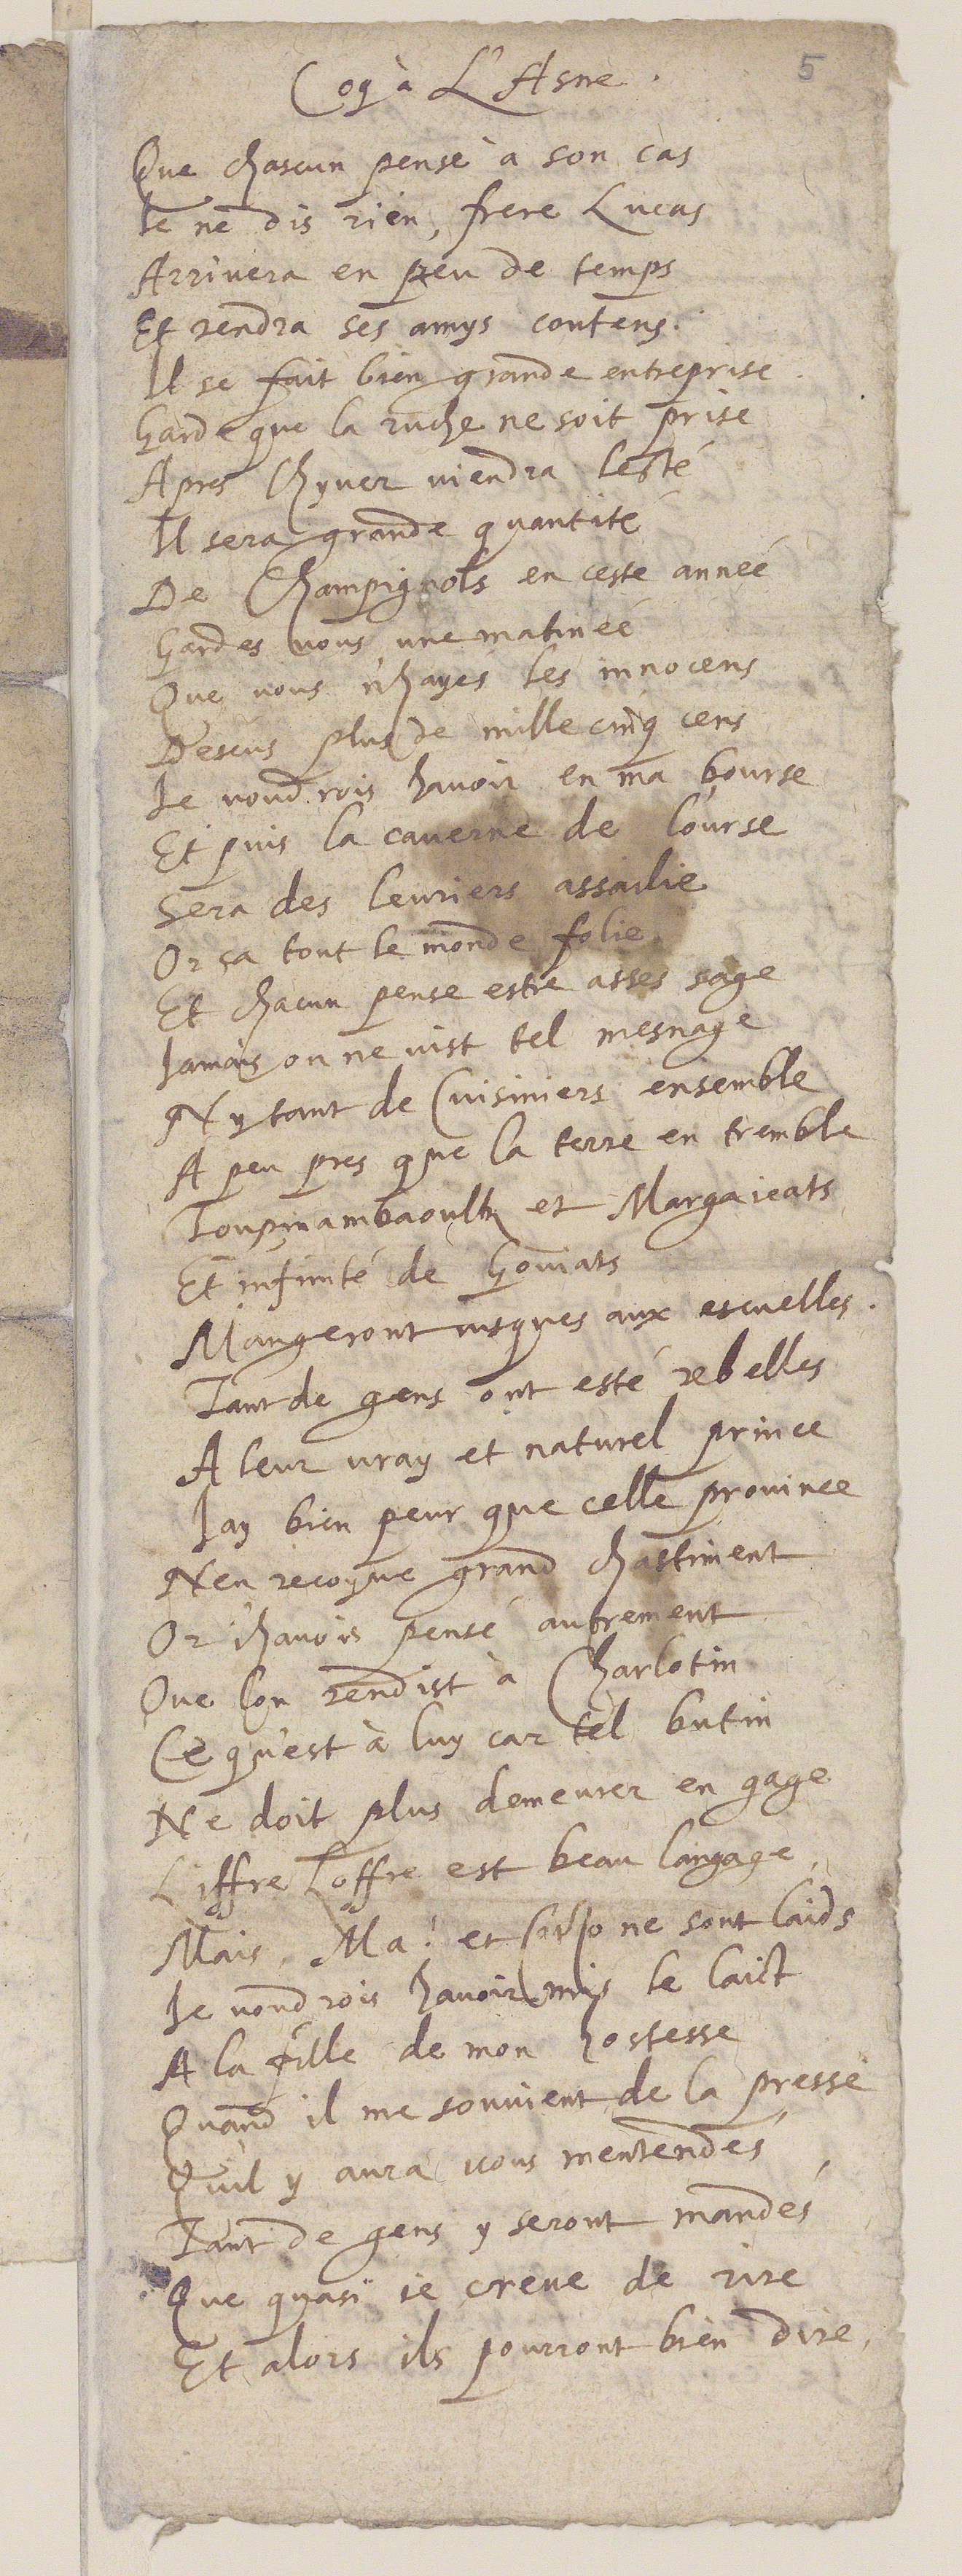 5
Coq à L'Asne.
Que chascun pense à son cas
Ie ne dis rien, frere Lucas
Arriuera en peu de temps
Et rendra ses amys contens.
Il se fait bien grande entreprise.
Garde que la ruche ne soit prise
Apres lhyuer viendra lesté
Il sera grande quantité
De Champignols en ceste année
Gardes vous une matinée
Que vous n'hayes les innocens
D'escus plus de mille cinq cens
Ie voudrois hauoir en ma bourse
Et puis la cauerne de l'ourse
Sera des leuriers assailie
Or ça tout le monde folie.
Et chacun pense estre asses sage
Iamais on ne vist tel mesnage
Ny tant de Cuisiniers ensemble
A peu pres que la terre en tremble
Toupinambaoultz et Margaieats
Et infinité de Gouiats
Mangeront iusques aux escuelles.
Tant de gens ont esté rebelles
A leur vray et naturel prince
Iay bien peur que celle prouince
Nen recoyue grand chastiment
Or i'hauois pensé autrement
Que lon rendist à Charlotin
Ce qu'est à luy car tel butin
Ne doit plus demeurer en gage
Liffre Loffre est beau langage,
Mais, Ma! et ne sont laids
Ie voudrois hauoir mis le laict
A la fille de mon hostesse
Quand il me souuient de la presse
Quil y aura vous mentendés,
Tant de gens y seront mandés
Que quasi ie creue de rire
Et alors ils pourront bien dire,